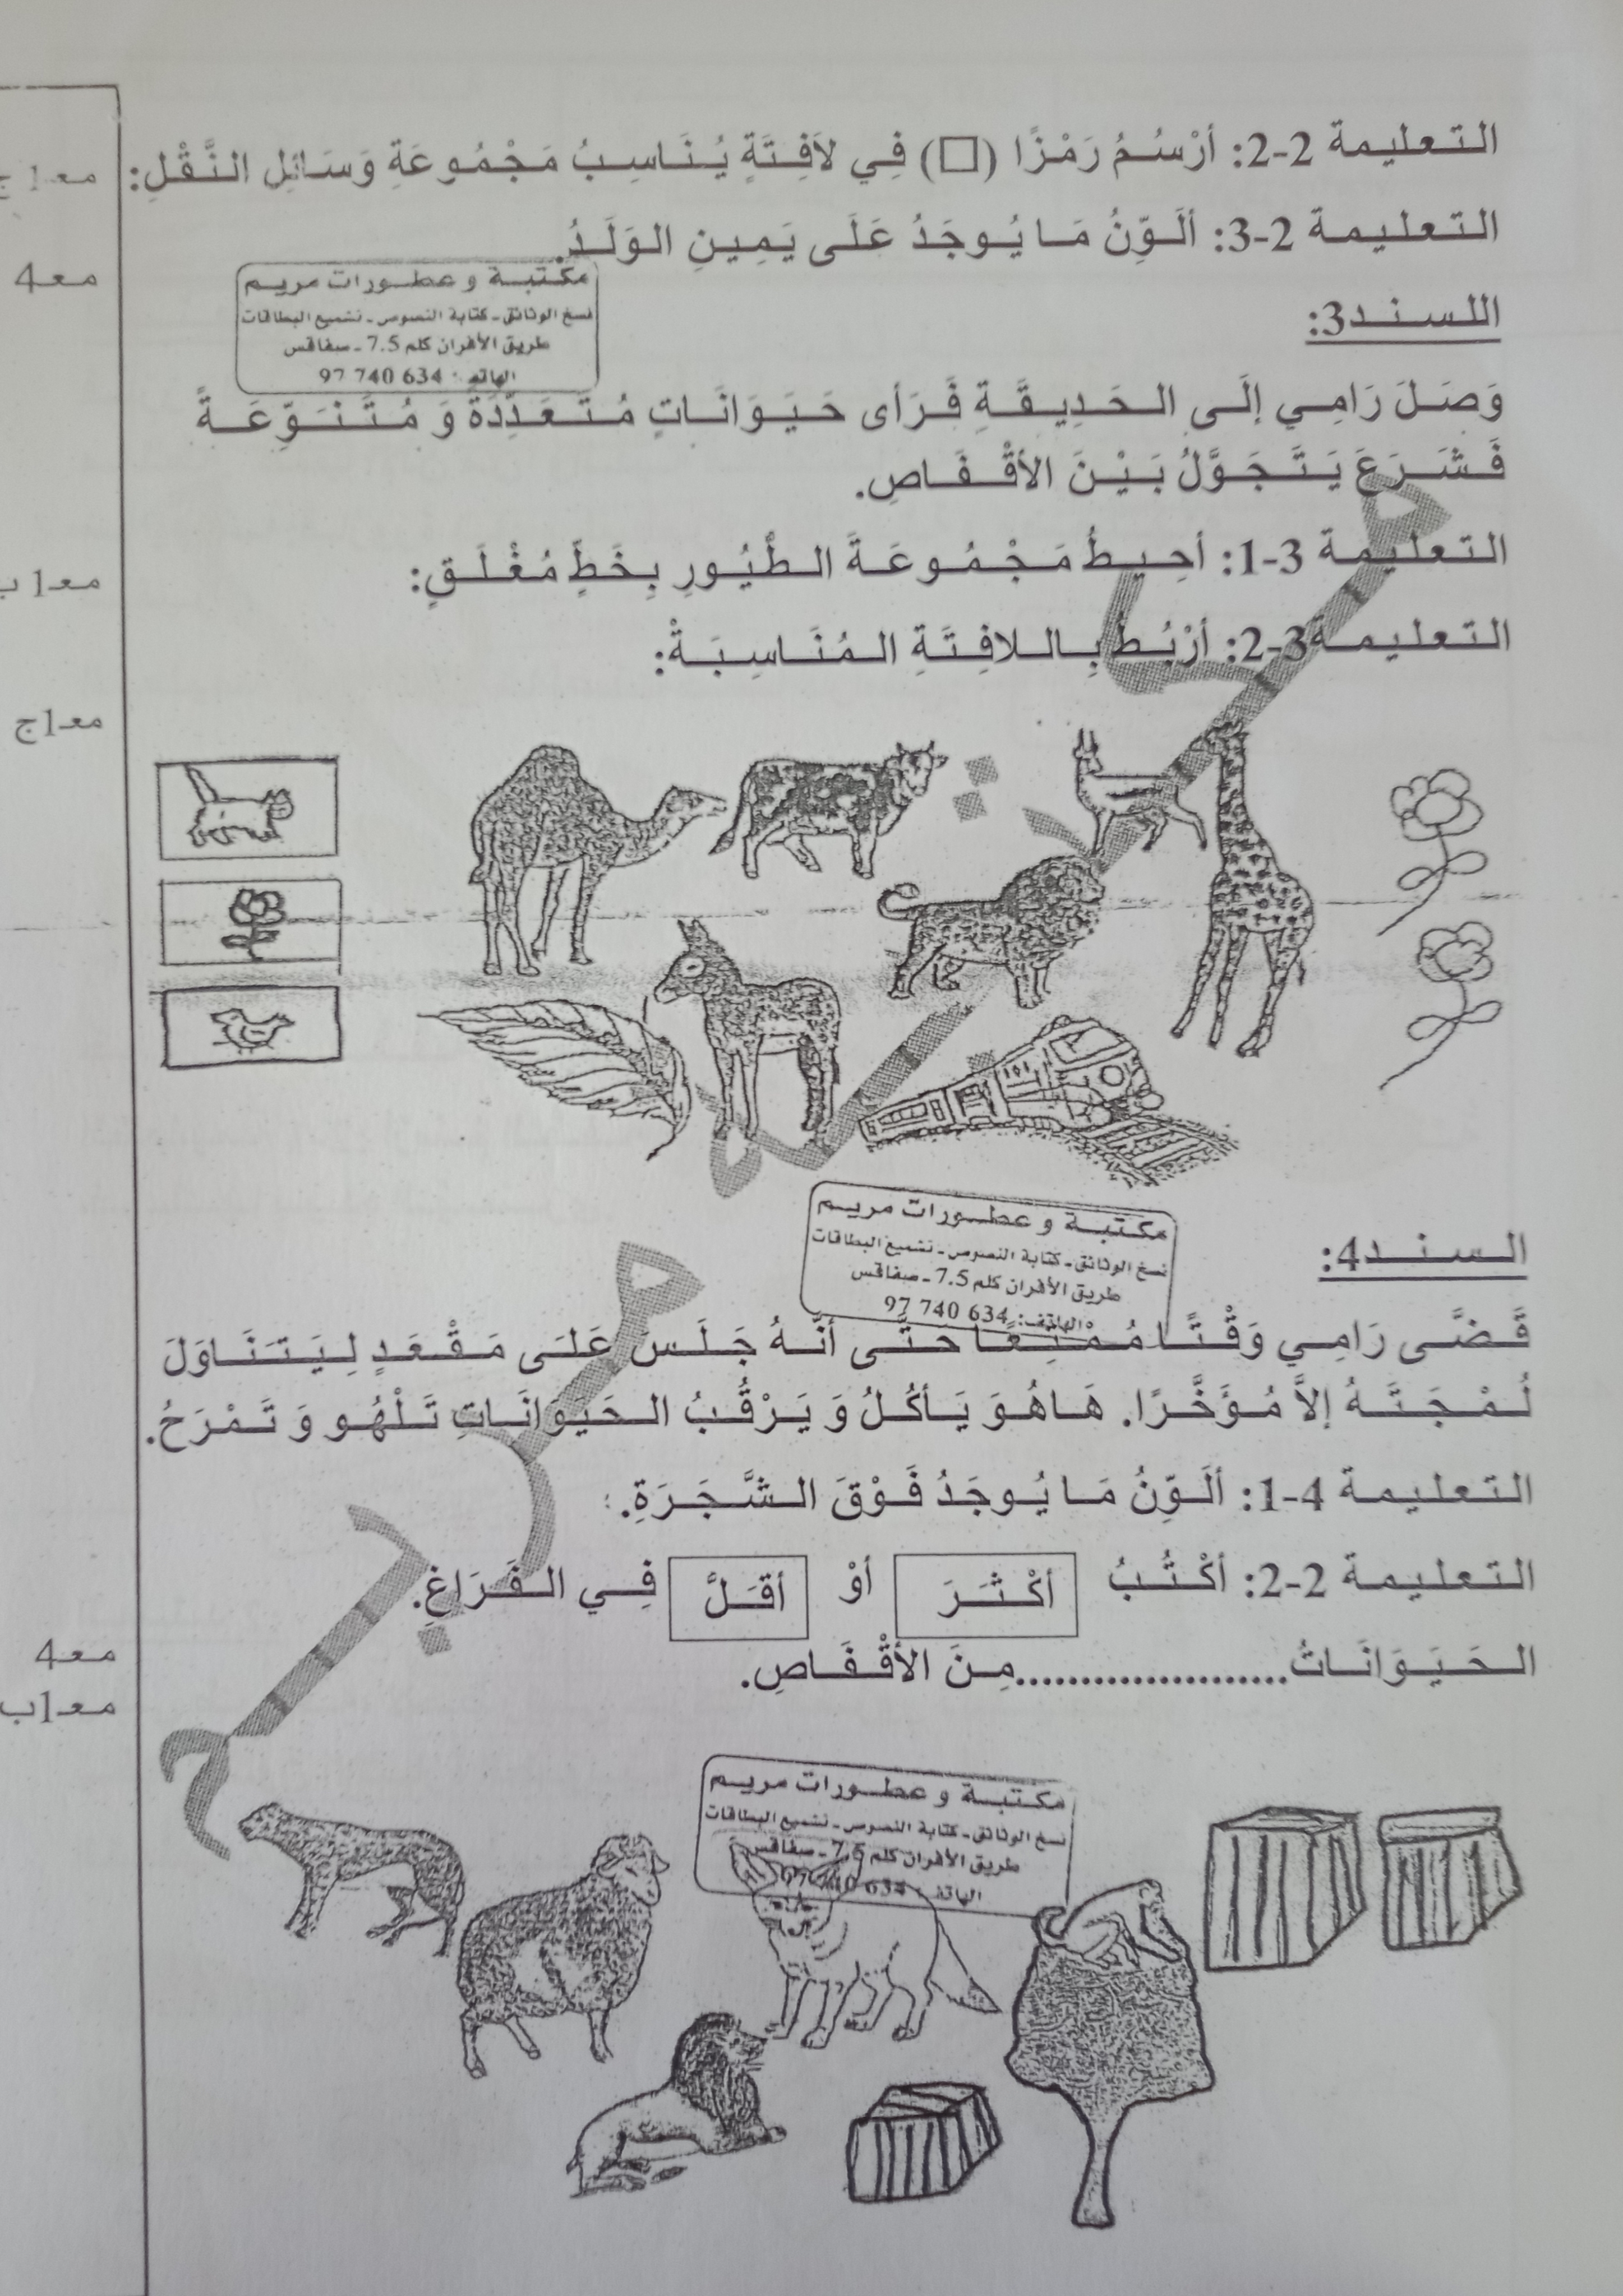 التعليمة 2-2: أرْسُمُ رَمْزًا (□) فِي لاَفِتَةٍ يُنَاسِبُ مَجْمُوعَةِ وَسَائِلِ النَّقْلِ:
معـ1 ج
التعليمة 2-3: ألَوِّنُ مَا يُوجَدُ عَلَى يَمِينِ الوَلَدُ.
معـ4
مكتبة و عطورات مريم
نسخ الوثائق - كتابة النصوص - تشميع البطاقات
طريق الأفران كلم 7.5 - صفاقس
الهاتف: 634 740 97
اللسند3:
وَصَلَ رَامِي إلَى الحَدِيقَةِ فَرَأى حَيَوَانَاتٍ مُتَعَدِّدَةً وَ مُتَنَوِّعَةً
فَشَرَعَ يَتَجَوَّلُ بَيْنَ الأقْفَاصِ.
التعليمة 3-1: أحِيطُ مَجْمُوعَةَ الطُّيُورِ بِخَطٍّ مُغْلَقٍ:
معـ1 ب
التعليمة3-2: أرْبُطُ بِاللافِتَةِ المُنَاسِبَةْ:
معـ1ج
مكتبة و عطورات مريم
نسخ الوثائق - كتابة النصوص - تشميع البطاقات
طريق الأفران كلم 7.5 - صفاقس
الهاتف: 634 740 97
السند4:
قَضَّى رَامِي وَقْتًا مُمْتِعًا حتَّى أنَّهُ جَلَسَ عَلَى مَقْعَدٍ لِيَتَنَاوَلَ
لُمْجَتَهُ إلاَّ مُؤَخَّرًا. هَاهُوَ يَأكُلُ وَ يَرْقُبُ الحَيَوانَاتِ تَلْهُو وَ تَمْرَحُ.
التعليمة 4-1: ألَوِّنُ مَا يُوجَدُ فَوْقَ الشَّجَرَةِ.
التعليمة 2-2: أكْتُبُ أكْثَرَ أوْ أقَلَّ فِي الفَرَاغِ.
معـ4
الحَيَوَانَاتُ.....................مِنَ الأقْفَاصِ.
معـ1ب
مكتبة و عطورات مريم
نسخ الوثائق - كتابة النصوص - تشميع البطاقات
طريق الأفران كلم 7.5 - صفاقس
الهاتف: 634 740 97